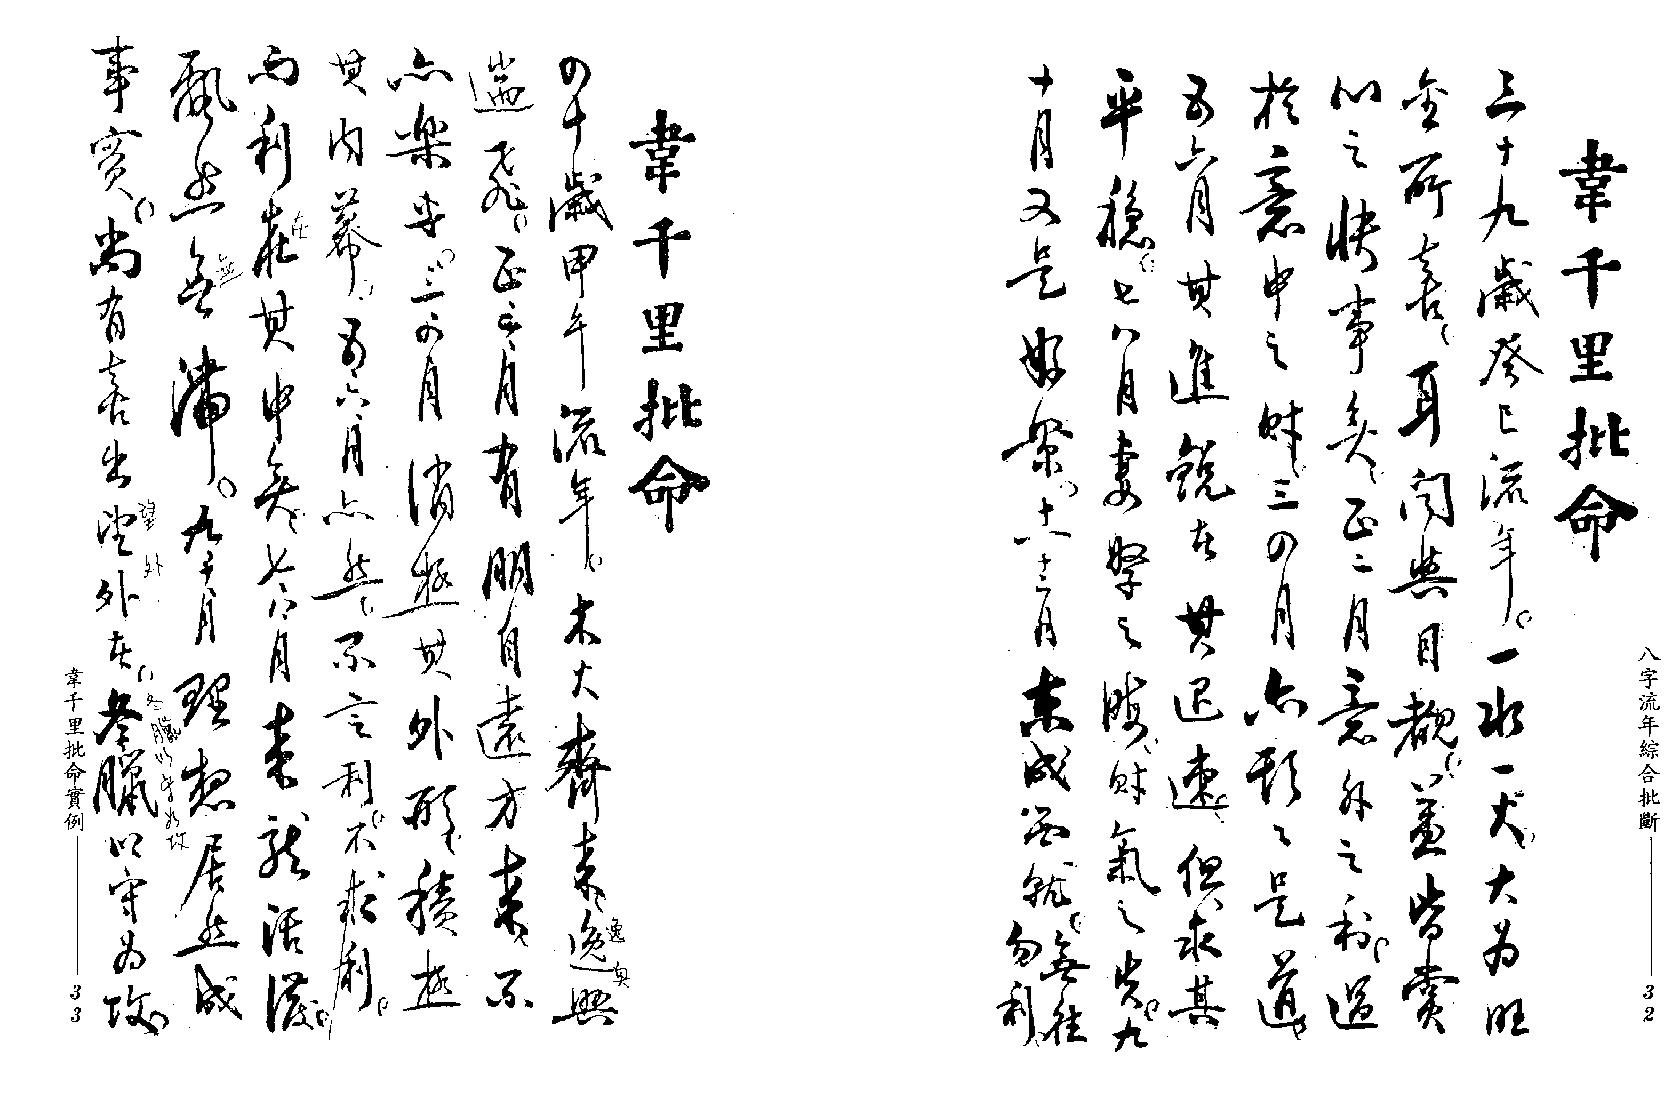 八字流年綜合批斷
32
韋千里批命
三十九歲癸巳流年。一水一火、大為旺
金所喜、耳聞與目覩、蓋皆賞
心之快事矣、正二月意外之利、過
於意中之財、三四月亦頭頭是道、
五六月其進銳者其退速、但求其
平穩、七八月妻孥之財氣之失、九
十月又是好景、十一十二月未成就、無往勿利
韋千里批命
四十歲甲午流年。木火齊來、逸興
逸興
遄飛、正二月有朋自遠方來、不
亦樂乎、三四月消極其外形、積極
其內幕、五六月亦然、不言利、不求利、
而利在其中矣、七八月龍活潑、
在
飄然無滯。九十月理想居然成
無
事實、尚有喜出望外者、冬臘以守為攻、
望外
冬臘以守為攻
韋千里批命實例
33